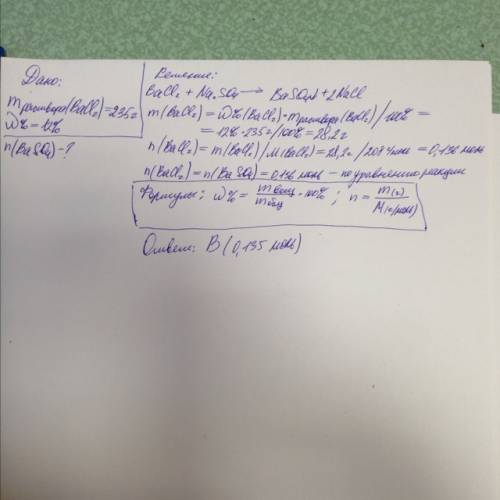 Дано:
m раствора(BaCl₂)=235г
W%=12%
n(BaSO₄)-?
Решение:
BaCl₂ + Na₂SO₄ → BaSO₄↓+2NaCl
m(BaCl₂) = W%(BaCl₂)·m раствора(BaCl₂)/100% =
= 12%·235г/100% = 28,2г
n(BaCl₂) = m(BaCl₂)/M(BaCl₂) = 28,2г/208г/моль = 0,136 моль
n(BaCl₂) = n(BaSO₄) = 0,136 моль – по уравнению реакции
Формулы: W% = m вещ/m общ · 100% ; n = m(г)/M(г/моль)
Ответ: В (0,135 моль)